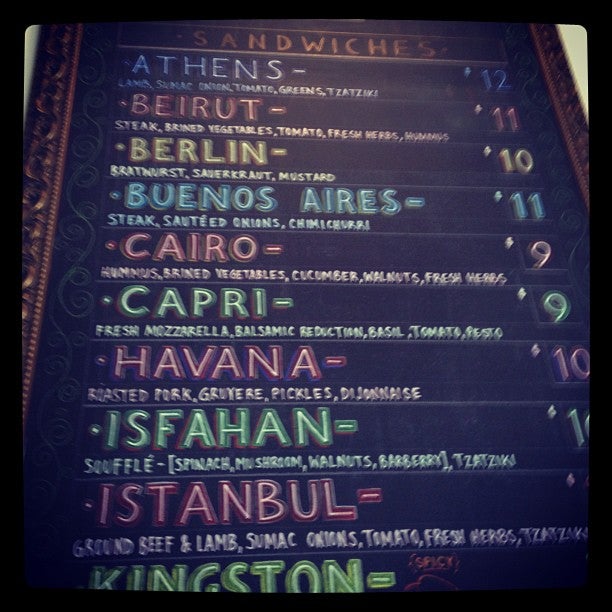 SANDWICHES
·ATHENS- $12
LAMB, SUMAC ONION, TOMATO, GREENS, TZATZIKI
·BEIRUT- $11
STEAK, BRINED VEGETABLES, TOMATO, FRESH HERBS, HUMMUS
·BERLIN- $10
BRATWURST, SAUERKRAUT, MUSTARD
·BUENOS AIRES- $11
STEAK, SAUTÉED ONIONS, CHIMICHURRI
·CAIRO- $9
HUMMUS, BRINED VEGETABLES, CUCUMBER, WALNUTS, FRESH HERBS
·CAPRI- $9
FRESH MOZZARELLA, BALSAMIC REDUCTION, BASIL, TOMATO, PESTO
·HAVANA- $10
ROASTED PORK, GRUYERE, PICKLES, DIJONNAISE
·ISFAHAN-
SOUFFLÉ-[SPINACH, MUSHROOM, WALNUTS, BARBERRY], TZATZIKI
·ISTANBUL-
GROUND BEEF & LAMB, SUMAC ONIONS, TOMATO, FRESH HERBS, TZATZIKI
KINGSTON- (SPICY)